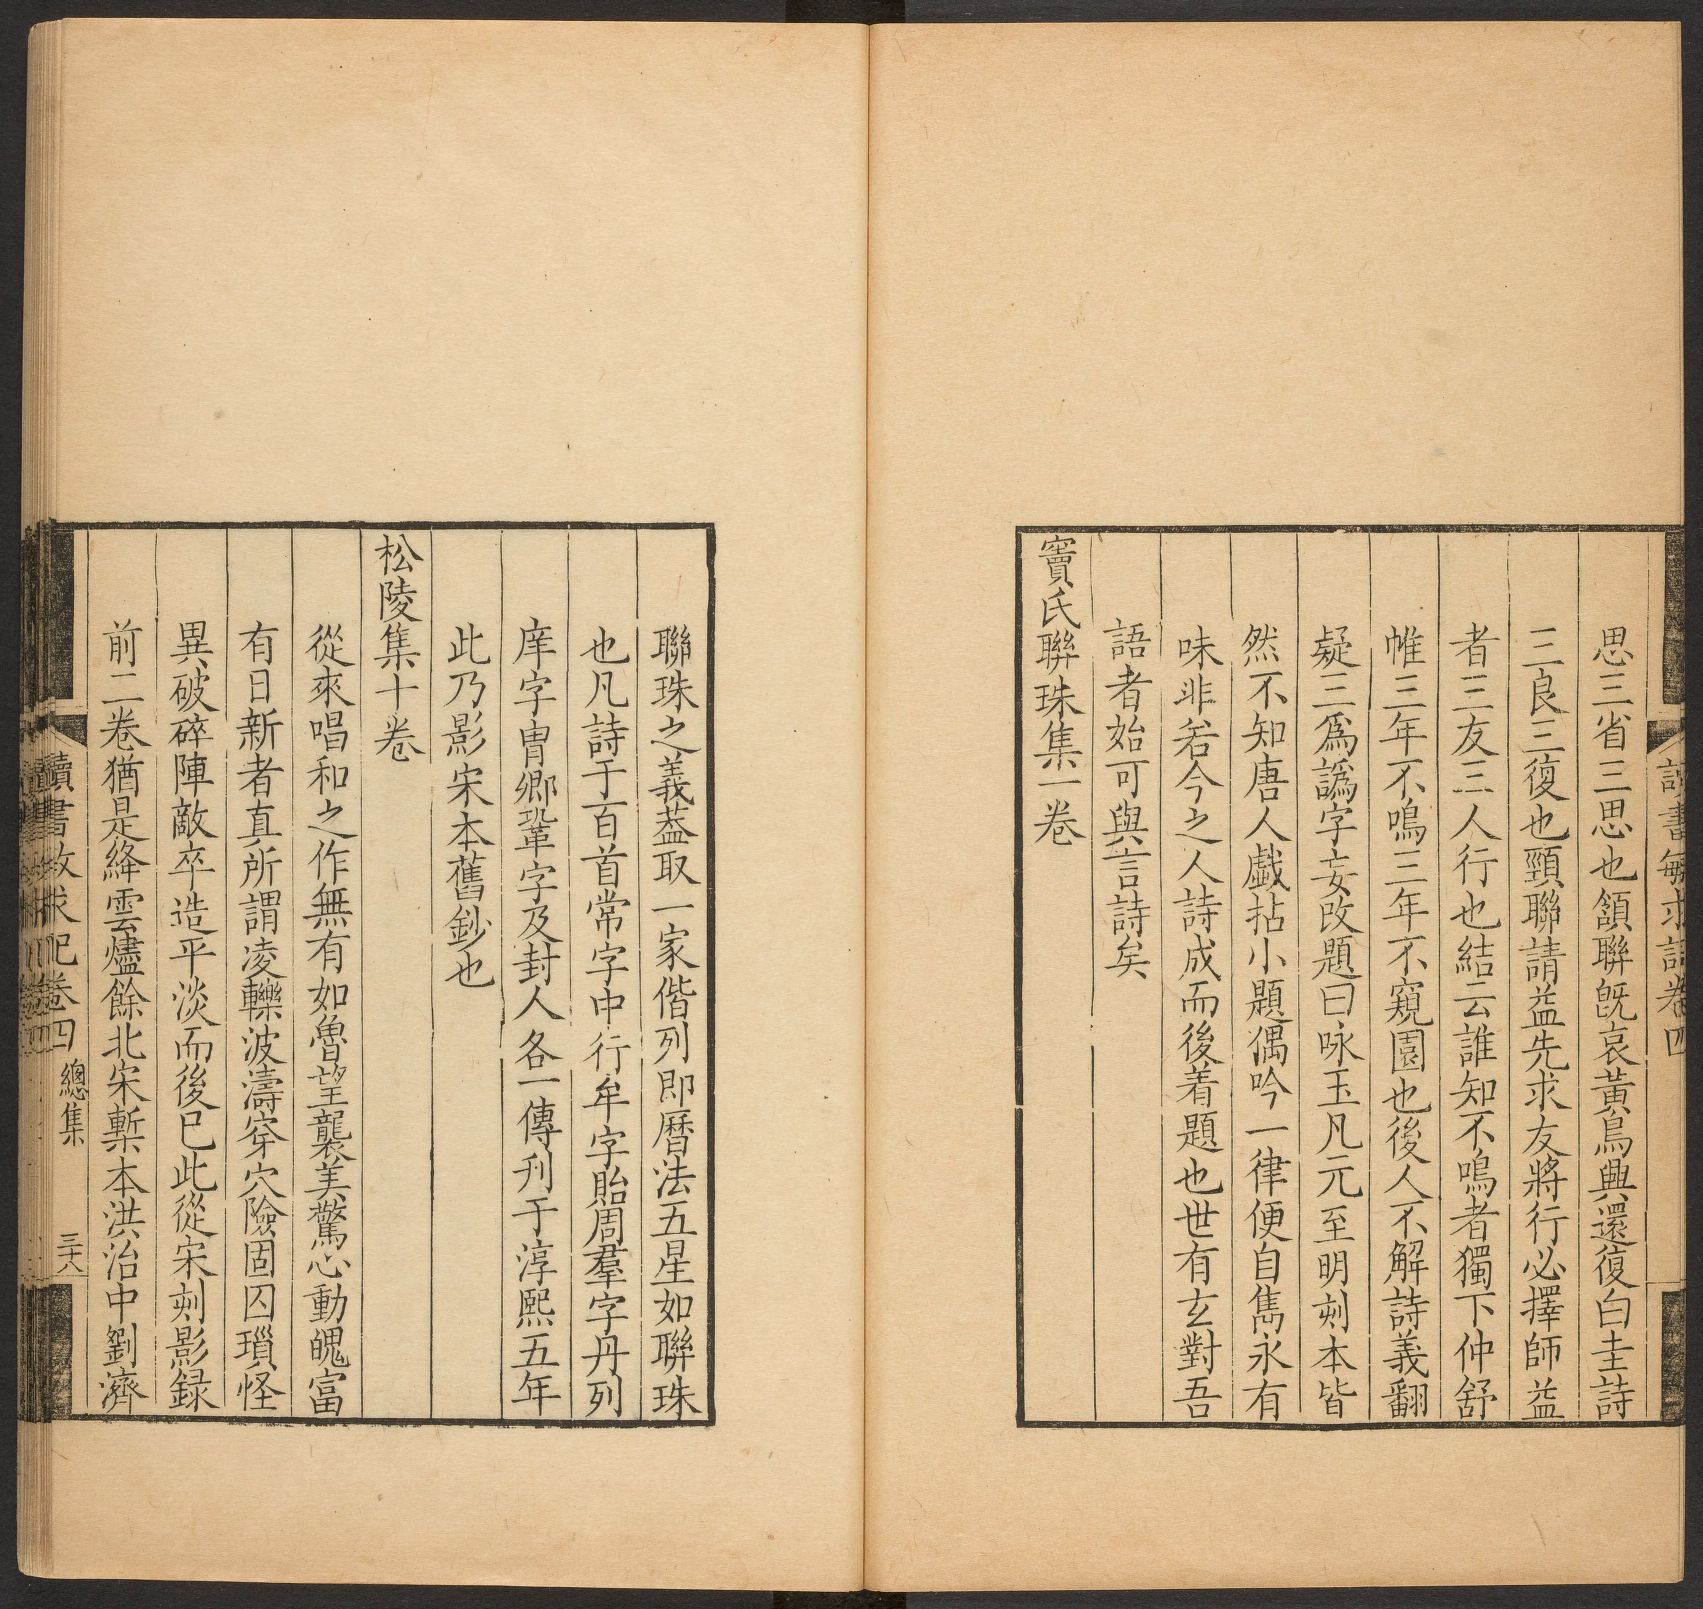 讀書敏求記卷四
思三省三思也頷聯旣哀黃鳥興還復白圭詩
三良三復也頸聯請益先求友將行必擇師益
者三友三人行也結云誰知不鳴者獨下仲舒
帷三年不鳴三年不窺園也後人不解詩義翻
疑三爲譌字妄改題曰咏玉凡元至明刻本皆
然不知唐人戲拈小題偶吟一律便自雋永有
味非若今之人詩成而後着題也世有玄對吾
語者始可與言詩矣
竇氏聯珠集一卷
聯珠之義葢取一家偕列即曆法五星如聯珠
也凡詩于百首常字中行牟字貽周羣字丹列
庠字冑卿鞏字及封人各一傳刋于淳熙五年
此乃影宋本舊鈔也
松陵集十卷
從來唱和之作無有如魯望襲美驚心動魄富
有日新者真所謂凌轢波濤穿穴險固囚瑣怪
異破碎陣敵卒造平淡而後已此從宋刻影録
前二卷猶是絳雲燼餘北宋槧本洪治中劉濟
讀書敏求記卷四 總集 三十八